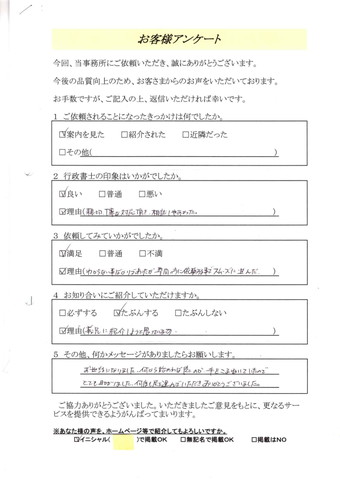 お客様アンケート
今回、当事務所にご依頼いただき、誠にありがとうございます。
今後の品質向上のため、お客さまからのお声をいただいております。
お手数ですが、ご記入の上、返信いただければ幸いです。
1 ご依頼されることになったきっかけは何でしたか。
☑案内を見た □紹介された □近隣だった
□その他( )
2 行政書士の印象はいかがでしたか。
☑良い □普通 □悪い
☑理由( 親切、丁寧な対応で )
3 依頼してみていかがでしたか。
☑満足 □普通 □不満
☑理由(わからない事ばかりだったが スムーズに進んだ )
4 お知り合いにご紹介していただけますか。
□必ずする ☑たぶんする □たぶんしない
☑理由( )
5 その他、何かメッセージがありましたらお願いします。
お世話になりました。
ありがとうございました。
ご協力ありがとうございました。いただきましたご意見をもとに、更なるサー
ビスを提供できるようがんばってまいります。
※あなた様の声を、ホームページ等で紹介してもよろしいですか。
☑イニシャル( )で掲載OK □無記名で掲載OK □掲載はNO